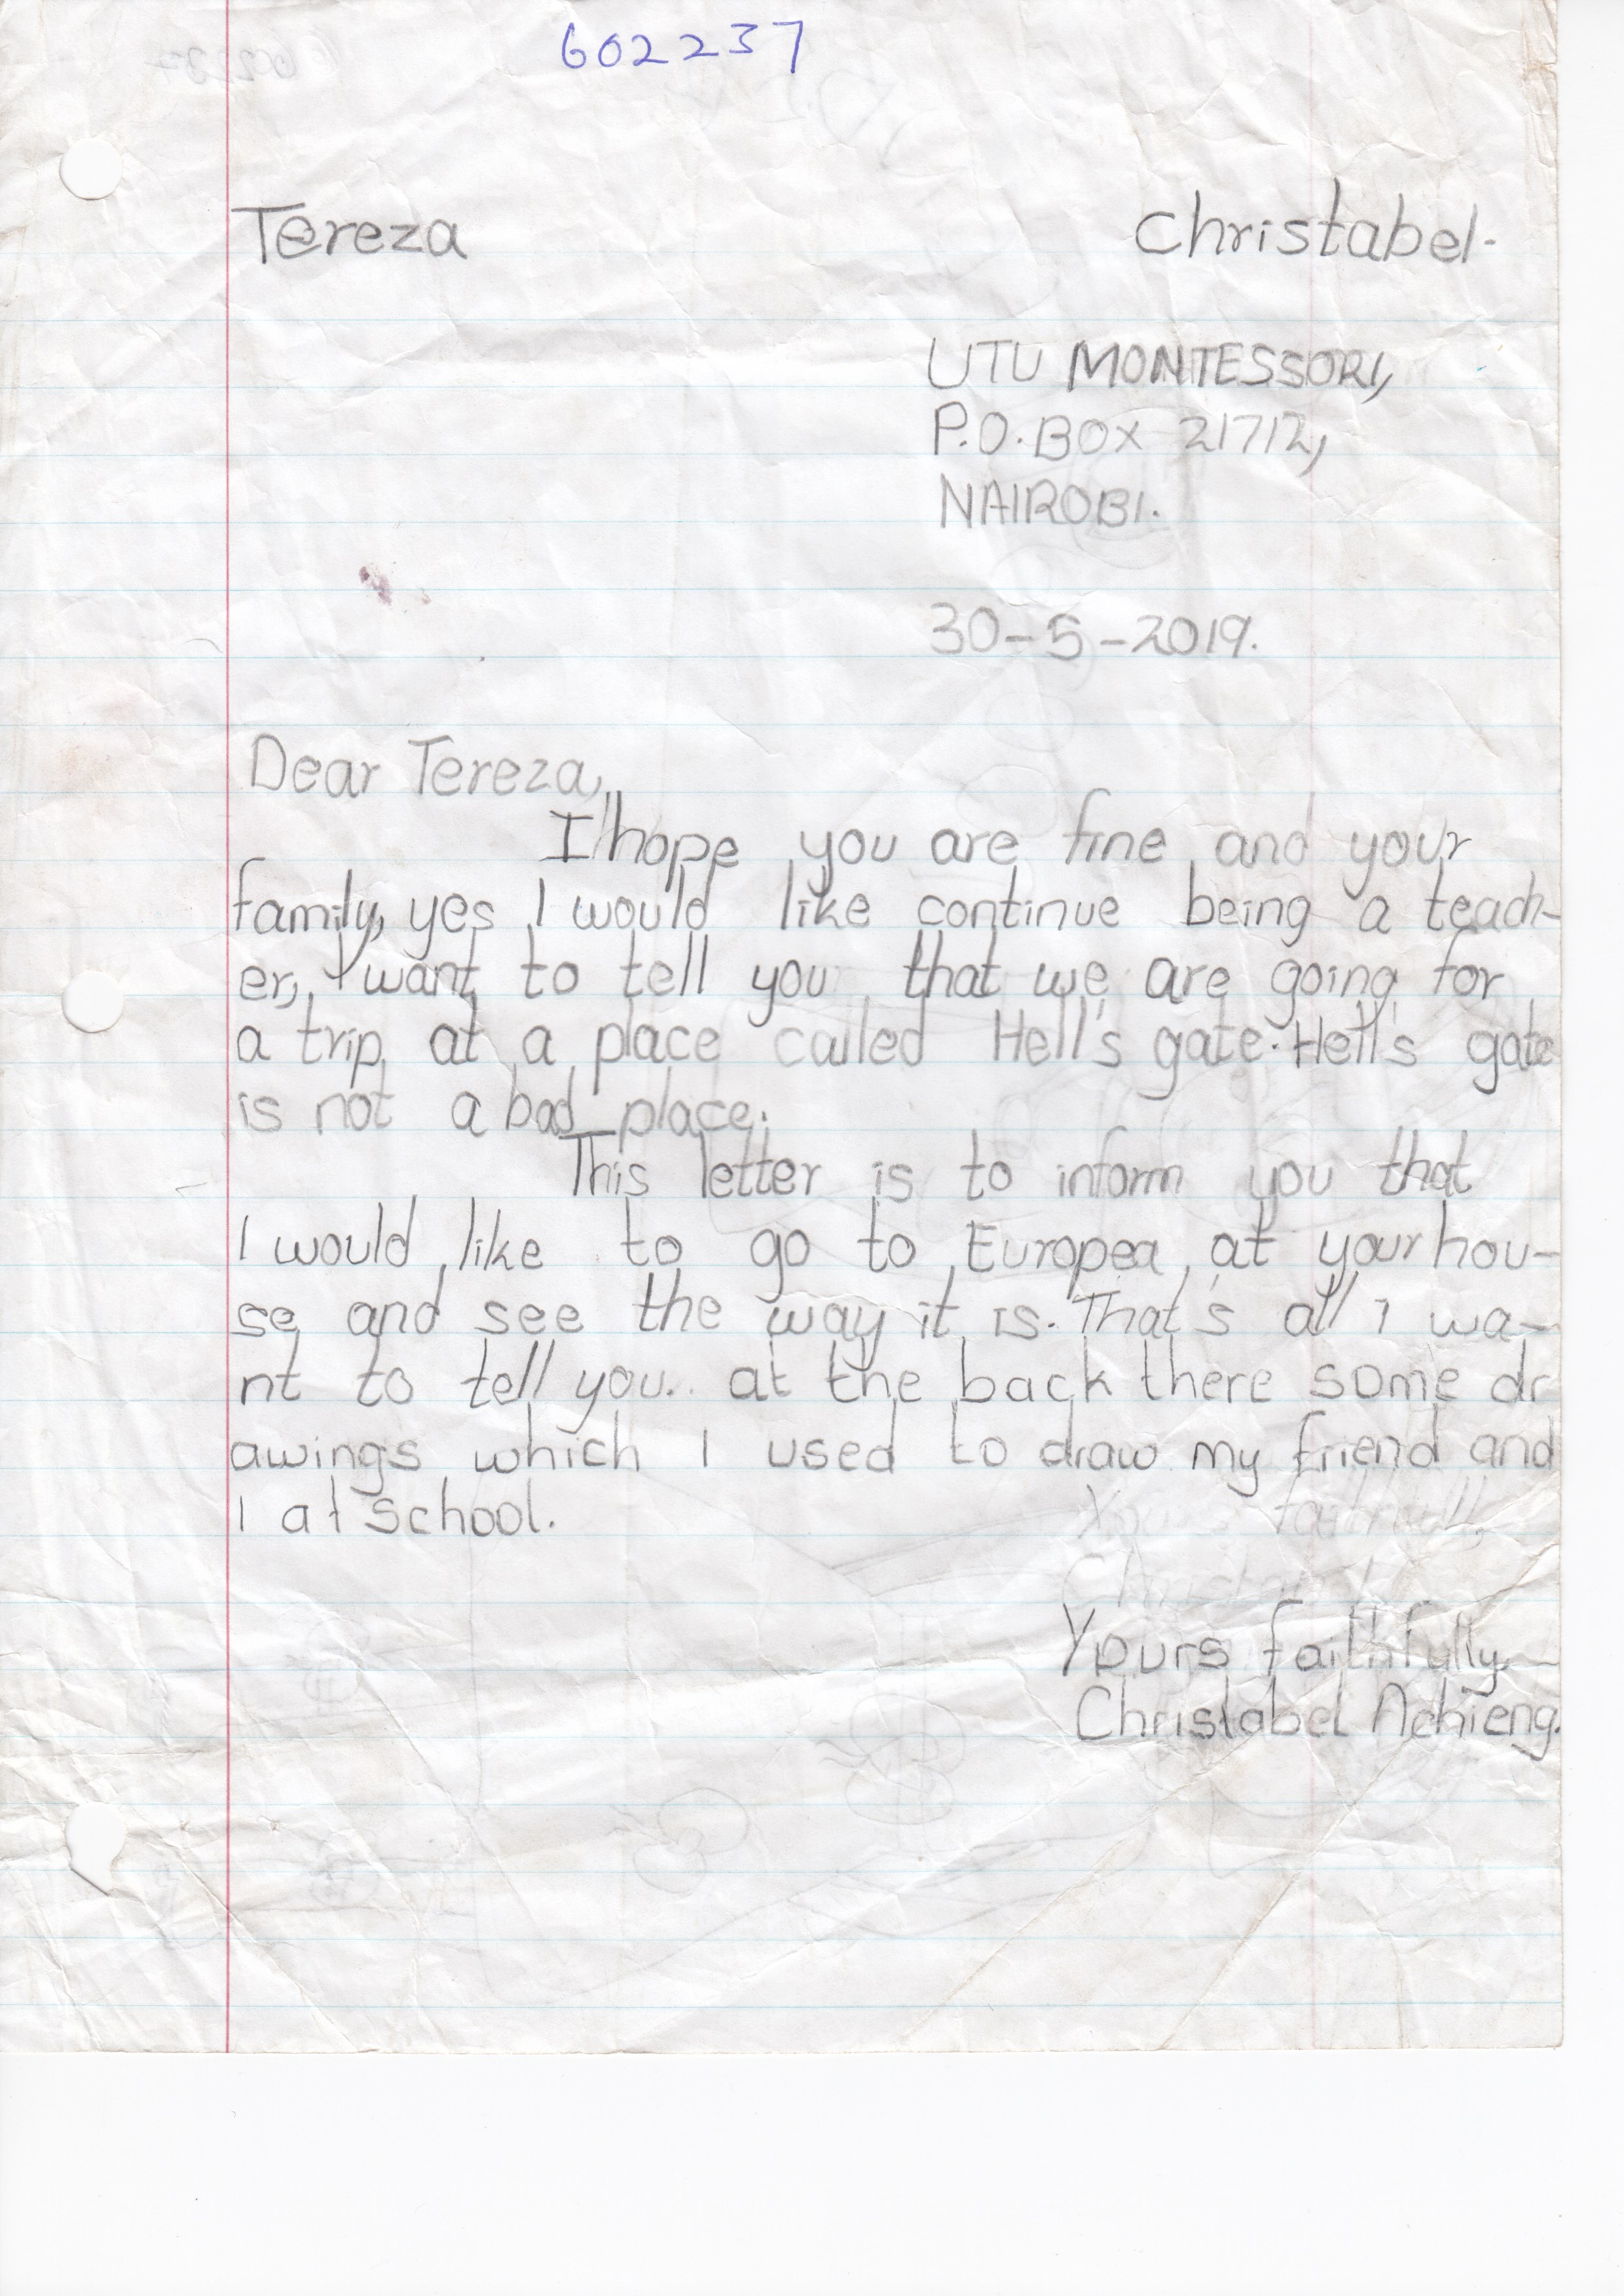 602237
Tereza Christabel.
UTU MONTESSORI,
P.O. BOX 21712,
NAIROBI.
30-5-2019.
Dear Tereza,
I hope you are fine and your
family, yes I would like continue being a teach-
er, I want to tell you that we are going for
a trip at a place called Hell's gate. Hell's gate
is not a bad place.
This letter is to inform you that
I would like to go to Europea at your hou-
se and see the way it is. That's all I wa-
nt to tell you.. at the back there some dr
awings which I used to draw my friend and
I at school.
Yours faithfully
Christabel Achieng.